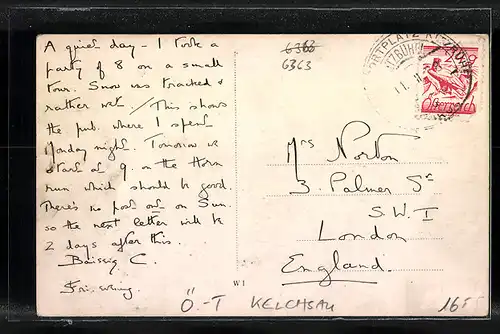 A quiet day - I took a
party of 8 on a small
tour. Snow was tracked &
rather wet. / This shows
the pub. where I spent
Monday night. Tomorrow we
start at 9 on the Horn
run which should be good.
There's no post out on Sun.
so the next letter will be
2 days after this.
C.
Fri. evening
6366
6363
SPORTPLATZ KITZBÜHEL
KITZBÜHEL
Österreich
Mrs Norton
3. Palmer St
S.W.I
London
England.
W I
Ö.-T KELCHSAU